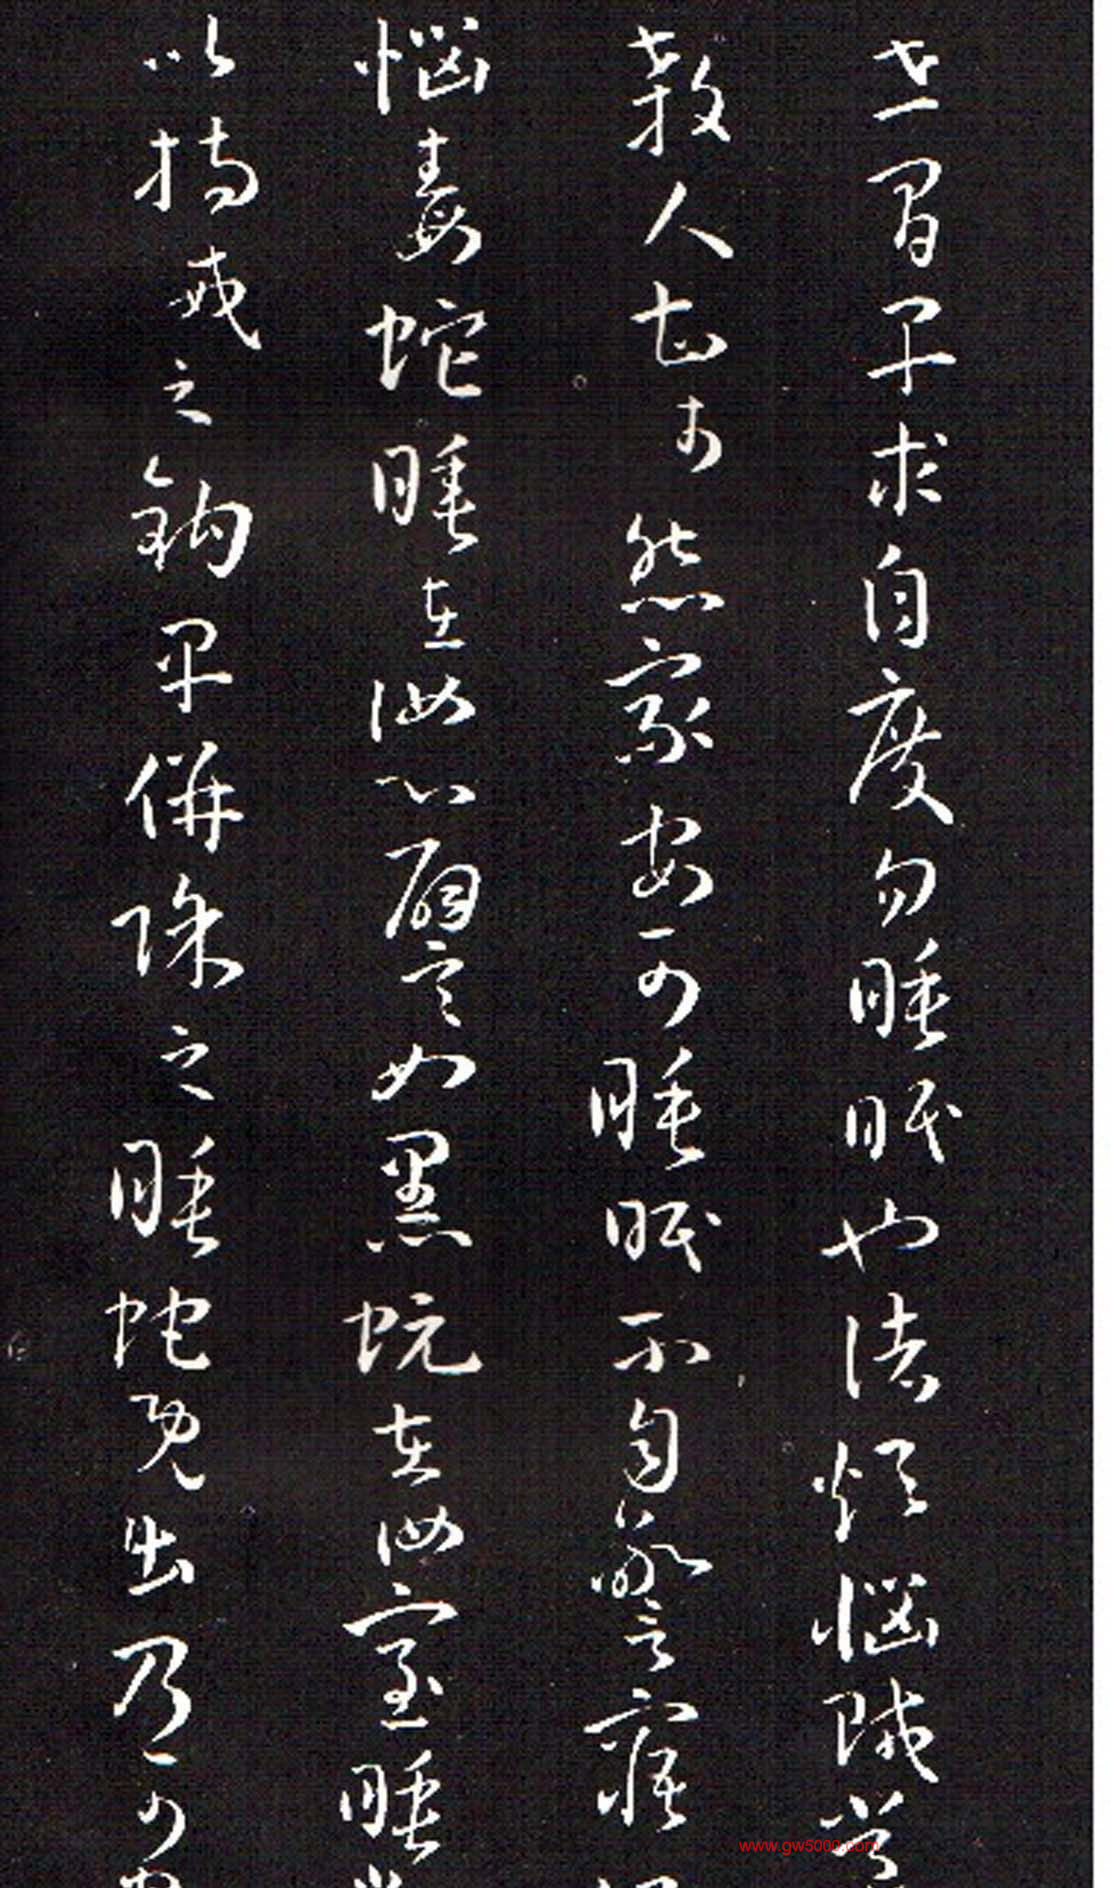 世間早求自度勿睡眠也諸煩惱賊常
殺人甚於怨家安可睡眠不自警寤
惱毒蛇睡在汝心譬如黑蚖在汝室睡
以持戒之鉤早併除之睡蛇既出乃可
www.gw5000.com